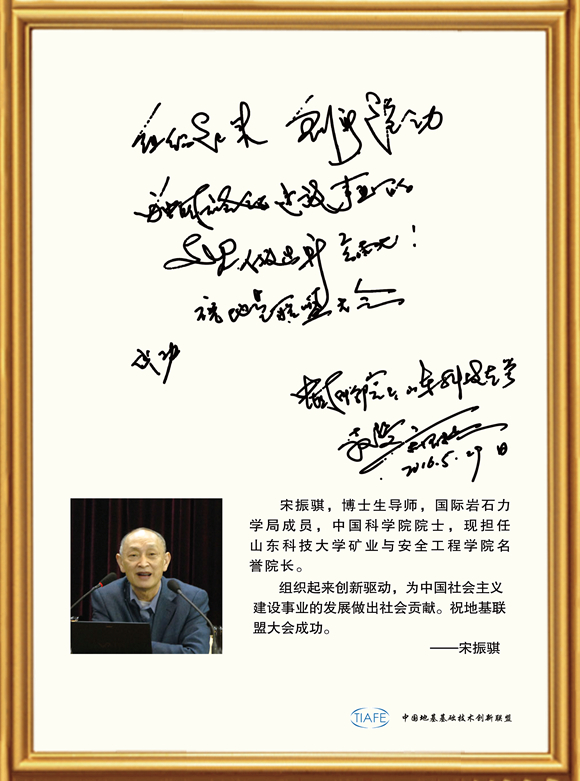 组织起来 创新驱动
为中国社会主义建设事业的
发展做出新贡献！
祝地基联盟大会
成功
中国科学院院士山东科技大学
教授 宋振骐
2016.5.29日
宋振骐，博士生导师，国际岩石力
学局成员，中国科学院院士，现担任
山东科技大学矿业与安全工程学院名
誉院长。
组织起来创新驱动，为中国社会主义
建设事业的发展做出社会贡献。祝地基联
盟大会成功。
——宋振骐
TIAFE 中国地基基础技术创新联盟